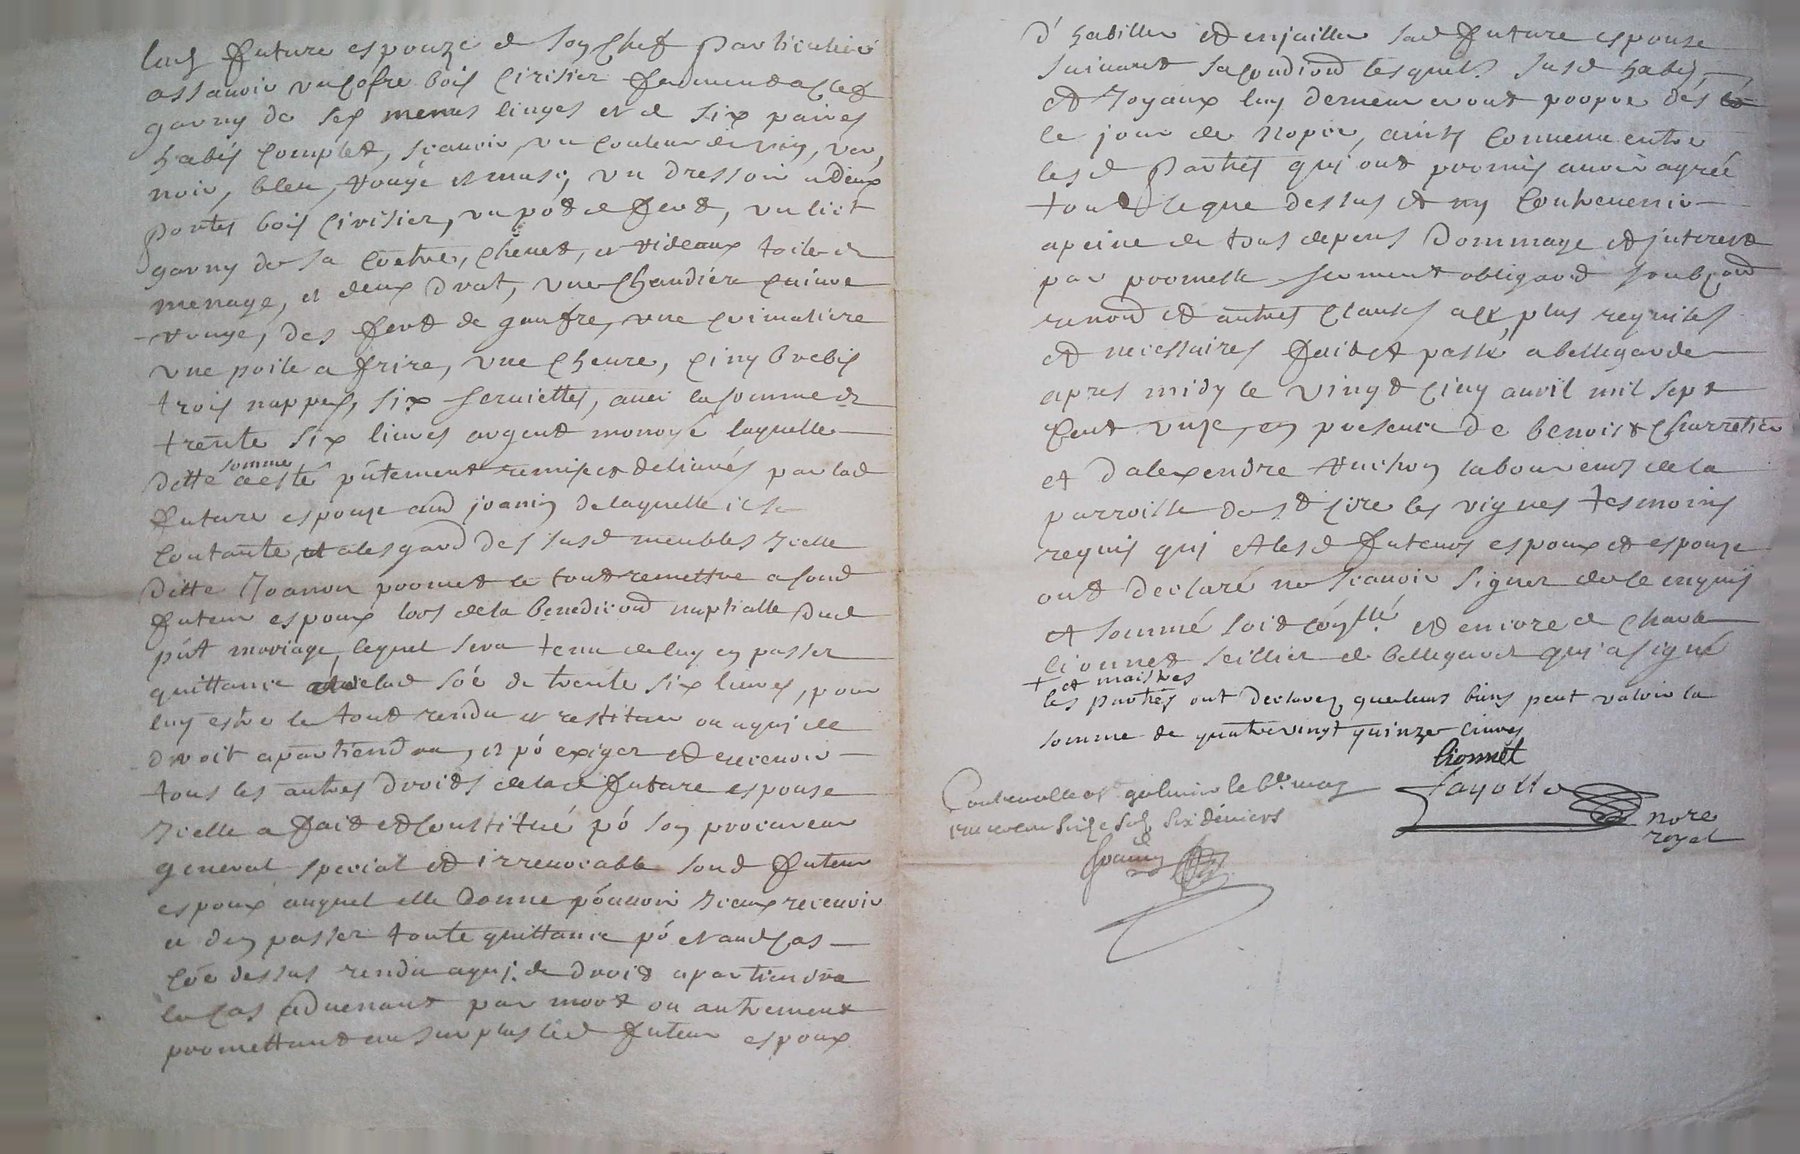 lad future espouze de son chef particulier
assavoir un cofre bois cirisier fermant a clef
garny de ses menus linges et de six paires
habis complet, sçavoir, un couleur de vin, ver,
noir, bleu, rouge et musc, un dressoir a deux
portes bois cirisier, un pot de fert, un lict
garny de sa coetre, chevet, et rideaux toile de
menage, et deux drat, une chaudiere cuivre
rouge, des fert de gaufre, une crimaliere
une poile a frire, une chevre, cinq brebis
trois nappes, six serviettes, avec la somme de
trente six livres argent monoyé laquelle
ditte somme a esté pntement remise et delivrés par lad
future espouze aud joanin de laquelle il se
contante, et a lesgard des susd meubles Icelle
ditte Joanon promet le tout remettre a sond
futeur espoux lors de la benediond nuptialle dud
pnt mariage, lequel sera tenu de luy en passer
quittance de lad soe de trente six livres, pour
luy estre le tout rendu et restitue ou a qui de
droit apartiendra, et po exiger et recevoir
tous les autres droits de lad future espouse
Icelle a fait et constitué po son procureur
general special et irrevocable sond futeur
espoux auquel elle donne povoir Iceux recevoir
et den passer toute quittance po et aud cas
coe dessus rendu a qui de droit apartiendra
le cas advenant par mort ou autrement
promettant au surplus led futeur espoux
d'habiller et enjailler sad future espouze
suivant sa condiond lesquels susd habis,
et Joyaux luy demeureront propre dés
le jour de nopce, ainsy convenu entre
lesd parties qui ont promis avoir agréé
tout ce que dessus et ny contrevenir
a peine de tous depens dommage et interest
par promesse serment obligaond soubzond
renond et autres clauses a ce plus requises
et necessaires fait et passé a bellegarde
apres midy le vingt cinq avril mil sept
cent unze, en presence de benoist Charretier
et d'alexendre huchon laboureurs de la
parroisse de st cire les vignes tesmoins
requis qui et lesd futeurs espoux et espouze
ont declaré ne scavoir signer de ce enquis
et sommé soit coytté et encore de Claude
lionnet seillier de bellegarde qui a signé
+ et maistres
les parties ont declarez que leurs biens peut valoir la
somme de quatre vingt quinze livres
Lionnet
Fayolle
nore
royal
Controllé a st galmier le 6e may
1711 receu seize sols six deniers